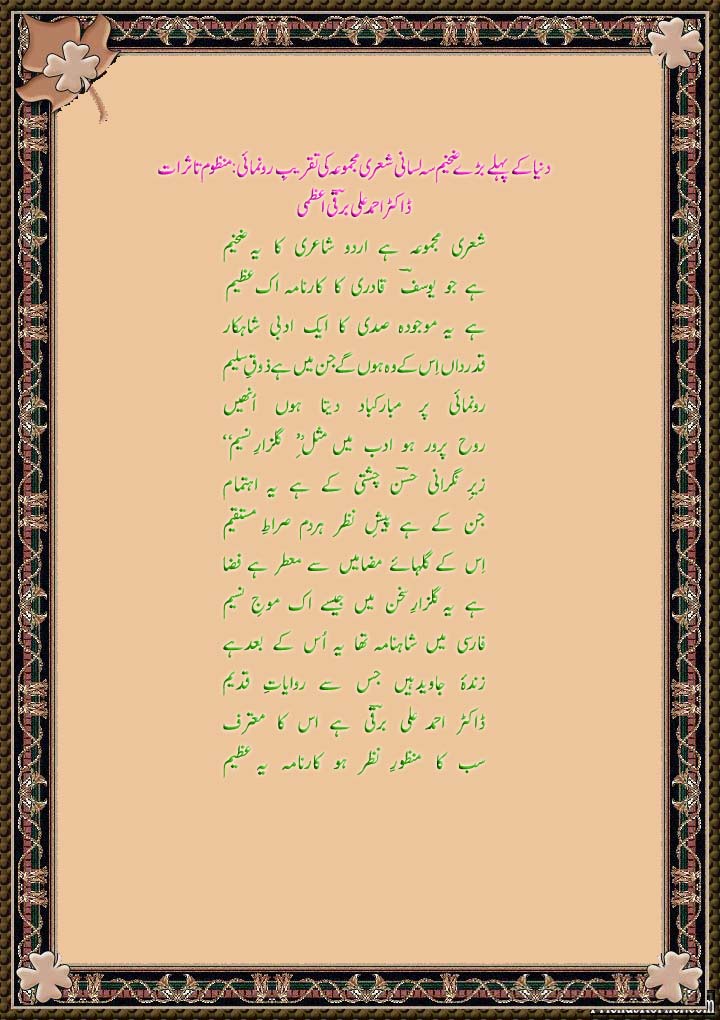 دنیا کے پہلے بڑے ضخیم سہ لسانی شعری مجموعہ کی تقریبِ رونمائی: منظوم تاثرات
ڈاکٹر احمد علی برقیؔ اعظمی
شعری مجموعہ ہے اردو شاعری کا یہ ضخیم
ہے جو یوسفؔ قادری کا کارنامہ اک عظیم
ہے یہ موجودہ صدی کا ایک ادبی شاہکار
قدرداں اِس کے وہ ہوں گے جن میں ہے ذوقِ سلیم
رونمائی پر مبارکباد دیتا ہوں اُنھیں
روح پرور ہو ادب میں مثلِ ’’گلزارِ نسیم‘‘
زیرِ نگرانی حسنؔ چشتی کے ہے یہ اہتمام
جن کے ہے پیشِ نظر ہردم صراطِ مستقیم
اِس کے گلہائے مضامیں سے معطر ہے فضا
ہے یہ گلزارِ سخن میں جیسے اک موجِ نسیم
فارسی میں شاہنامہ تھا یہ اُس کے بعد ہے
زندۂ جاوید ہیں جس سے روایاتِ قدیم
ڈاکٹر احمد علی برقیؔ ہے اس کا معترف
سب کا منظورِ نظر ہو کارنامہ یہ عظیم